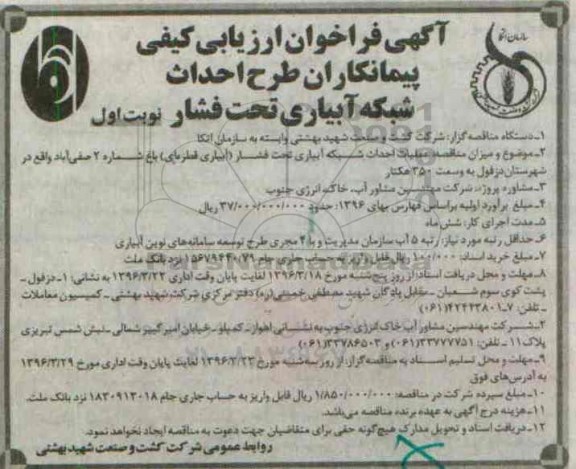 سازمان اتکا
آگهی فراخوان ارزیابی کیفی
پیمانکاران طرح احداث
شبکه آبیاری تحت فشار نوبت اول
۱ـ دستگاه مناقصه گزار: شرکت کشت و صنعت شهید بهشتی وابسته به سازمان اتکا
۲ـ موضوع و میزان مناقصه: عملیات احداث شبکه آبیاری تحت فشار (آبیاری قطره‌ای) باغ شماره ۲ صفی‌آباد واقع در
شهرستان دزفول به وسعت ۳۵۰ هکتار
۳ـ مشاوره پروژه: شرکت مهندسین مشاور آب، خاک، انرژی جنوب
۴ـ مبلغ برآورد اولیه براساس فهارس بهای ۱۳۹۶: حدود ۳۷/۰۰۰/۰۰۰/۰۰۰ ریال
۵ـ مدت اجرای کار: شش ماه
۶ـ حداقل رتبه مورد نیاز: رتبه ۵ آب سازمان مدیریت و یا ۴ مجری طرح توسعه سامانه‌های نوین آبیاری
۷ـ مبلغ خرید اسناد: ۱۰۰/۰۰۰ ریال قابل واریز به حساب جاری جام ۱۵۶۷۹۴۴۰۷۹ نزد بانک ملت
۸ـ مهلت و محل دریافت اسناد: از روز پنج‌شنبه مورخ ۱۳۹۶/۳/۱۸ لغایت پایان وقت اداری ۱۳۹۶/۳/۲۲ به نشانی: ۱ـ دزفول ـ
پشت کوی سوم شعبان ـ مقابل پادگان شهید مصطفی خمینی(ره) دفتر مرکزی شرکت شهید بهشتی ـ کمیسیون معاملات
ـ تلفن: ۷ـ۴۲۴۲۳۸۰۱(۰۶۱)
۲ـ شرکت مهندسین مشاور آب خاک انرژی جنوب به نشانی: اهواز ـ کمپلو ـ خیابان امیرکبیر شمالی ـ نبش شمس تبریزی
پلاک ۱۱ ـ تلفن: ۳۳۷۷۷۷۵۱(۰۶۱) و ۳۳۷۸۶۵۰۳(۰۶۱)
۹ـ مهلت و محل تسلیم اسناد به مناقصه گزار: از روز سه‌شنبه مورخ ۱۳۹۶/۳/۲۳ لغایت پایان وقت اداری مورخ ۱۳۹۶/۳/۲۹
به آدرس‌های فوق
۱۰ـ مبلغ سپرده شرکت در مناقصه: ۱/۸۵۰/۰۰۰/۰۰۰ ریال قابل واریز به حساب جاری جام ۱۸۳۰۹۱۳۰۱۸ نزد بانک ملت.
۱۱ـ هزینه درج آگهی به عهده برنده مناقصه می‌باشد.
۱۲ـ دریافت اسناد و تحویل مدارک هیچ‌گونه حقی برای متقاضیان جهت دعوت به مناقصه ایجاد نخواهد نمود.
روابط عمومی شرکت کشت و صنعت شهید بهشتی